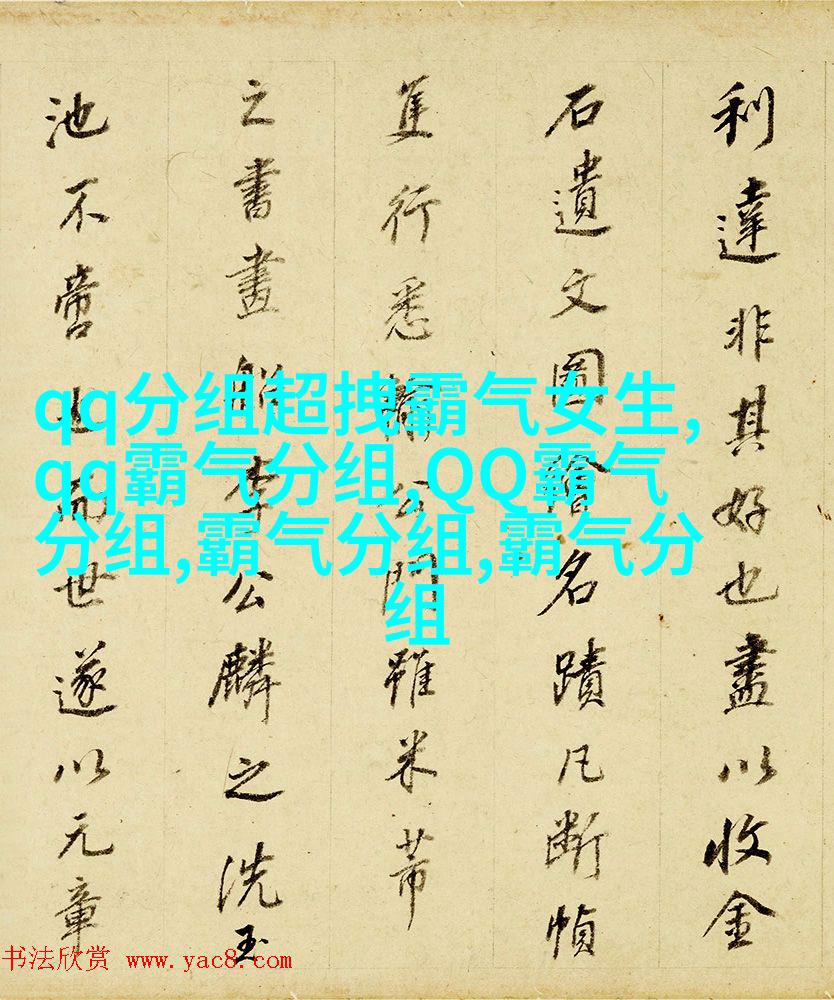 利達非其好也盡以收金
石遺文圖繪名蹟凡斷幀
隻行悉輸公門雖米芾
之書畫船李公麟之洗玉
池不啻也而世遂以元章
qq分组超拽霸气女生,
qq霸气分组,QQ霸气
分组,霸气分组,霸气分
组
书法欣赏 www.yac8.com